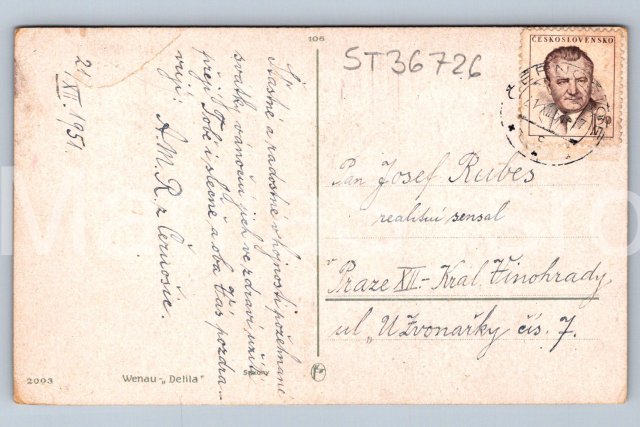 106
ST36726
ČESKOSLOVENSKO
21/XII. 1951
Šťastné a radostné v hojnosti požehnané
svátky vánoční jich ve zdraví užití
přeji Tobě i slečně a oba Vás pozdra-
vuji:
A.M.R. z Černošic.
Pan Josef Rubeš
realitní sensal
v Praze XII.- Král. Vinohrady,
ul „U Zvonařky čís. 7.
2003
Wenau-„Delila"